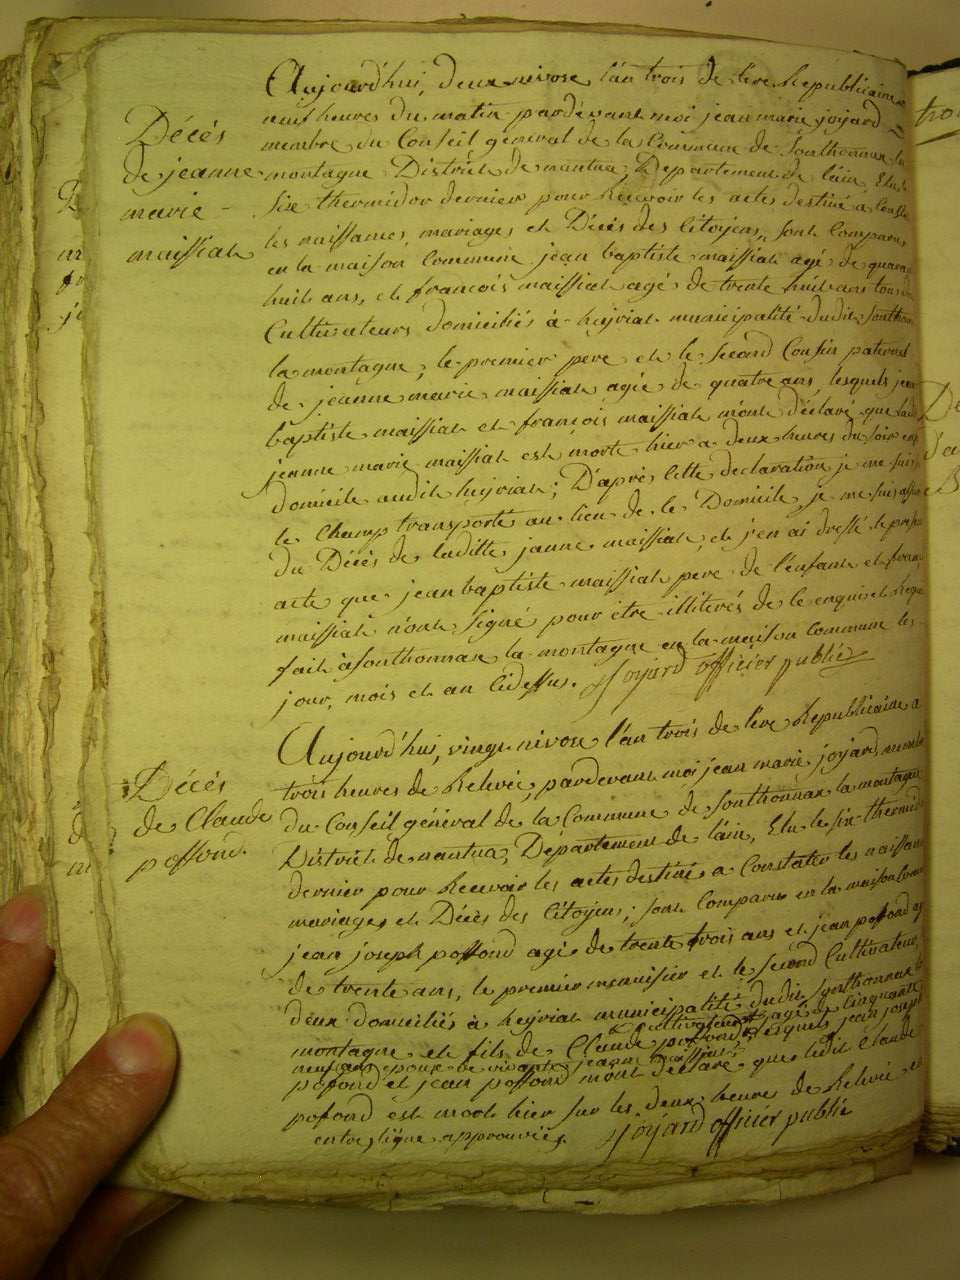 Décès
de jeanne
marie
maissiat
Aujourd'hui, deux nivose l'an trois de l'ere Republicaine a
neuf heures du matin pardevant moi jean marie joyard
membre du Conseil general de la Commune de Sonthonnax la
montagne District de nantua, Departement de l'ain, Elu le
six thermidor dernier pour Recevoir les actes destiné a
les naissances, mariages et Décès des Citoyens, sont Comparus
en la maison Commune jean baptiste maissiat agé de quarante
huit ans, et françois maissiat agé de trente huit ans tous
Cultivateurs domiciliés à heyriat municipalité dudit Sonthonnax
la montagne, le premier pere et le second Cousin paternel
de jeanne marie maissiat agée de quatre ans, lesquels jean
baptiste maissiat et françois maissiat m'ont déclaré que
jeanne marie maissiat est morte hier a deux heures du soir en
domicile audit heyriat; D'après Cette declaration je me suis
le Champ transporté au lieu de Ce Domicile, je me suis assuré
du Décès de laditte janne maissiat, et j'en ai dressé le présent
acte que jean baptiste maissiat pere de l'enfant et françois
maissiat n'ont signé pour être illiterés de Ce enquis et Requis
fait à Sonthonnax la montagne en la maison Commune les
jour, mois et an Cidessus. Joyard officier public
Décès
de Claude
poffond.
Aujourd'hui, vingt nivose l'an trois de l'ere Republicaine a
trois heures de Relevée, pardevant moi jean marie joyard, membre
du Conseil général de la Commune de Sonthonnax la montagne
District de nantua, Département de l'ain, Elu le six thermidor
dernier pour Recevoir les actes destiné a Constater les naissances
mariages et Décès des Citoyens; sont Comparus en la maison Commune
jean joseph poffond agé de trente trois ans et jean poffond agé
de trente ans, le premier menuisier et le second Cultivateur,
deux domiciliés à heyriat municipalité dudit Sonthonnax la
montagne et fils de Claude poffond, lesquels jean joseph
Cultivateur agé de Cinquante
neuf ans epoux de vivante jeanne maissiat
pofond et jean poffond m'ont déclaré que ledit Claude
pofond est mort hier sur les deux heures de Relevé en
entre ligne approuvées. Joyard officier public